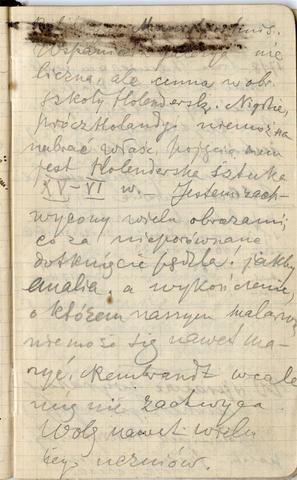 Wspaniał
nie
liczna, ale cenna w obr.
szkoły Holendersk. Nigdzie,
prócz Holandji niemożna
nabrać właśc. pojęcia czem
jest Holenderska sztuka
XV–VI w. Jestem zach-
wycony wielu obrazami;
co za nieporównane
dotknięcie pędzla, jakby
emalia, a wykończenie,
o którem naszym malarzom
niemoże się nawet ma-
rzyć, Rembrandt wcale
mię nie zachwyca
Wolę nawet wielu
jego uczniów.